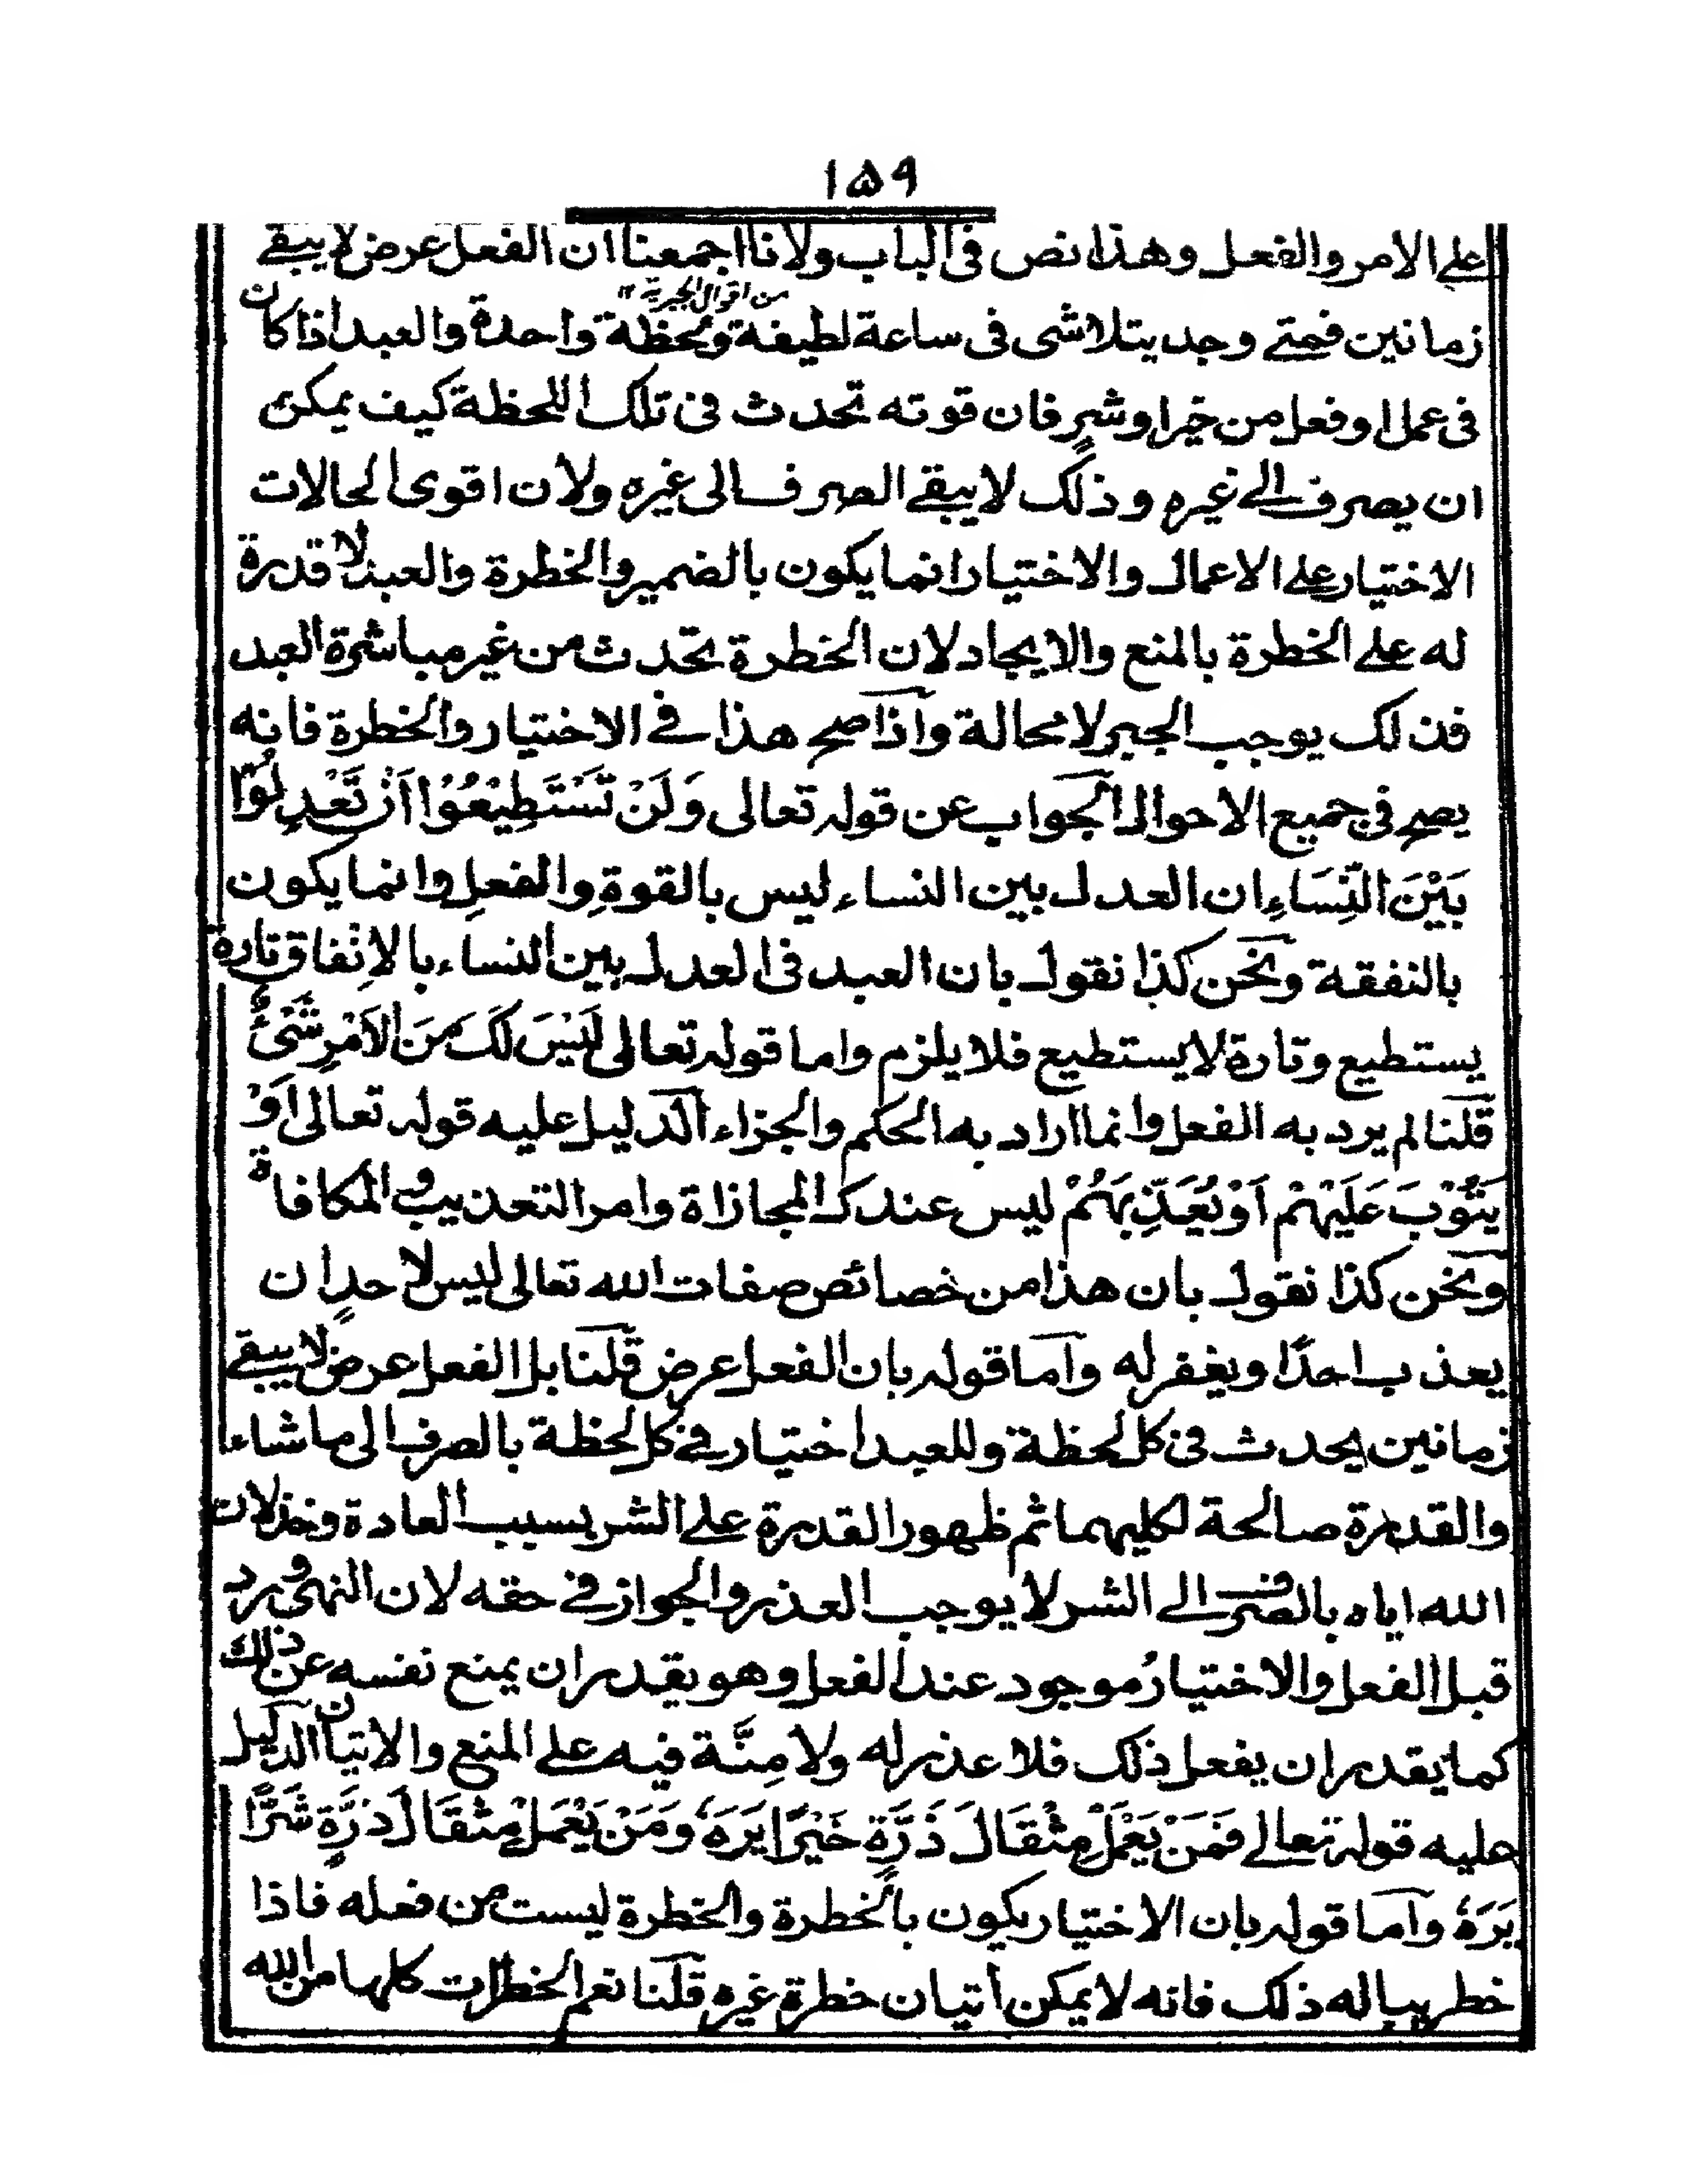 ١٥٩
على الامر والفعل وهذا نص فى الباب ولانا اجمعنا ان الفعل عرض لا يبقے
من اقوال الجبرية ١٢
زمانين فمتے وجد يتلاشى فى ساعة لطيفة ولحظة واحدة والعبد اذا كان
فى عمل او فعل من خير او شرٍ فان قوته تحدث فى تلك اللحظة كيف يمكن
ان يصرف الے غيره وذلك لا يبقے الصرف الى غيره ولان اقوى الحالات
الاختيار علے الاعمال والاختيار انما يكون بالضمير والخطرة والعبد لا قدرة
له علے الخطرة بالمنع والايجاد لان الخطرة تحدث من غير مباشرة العبد
فذلك يوجب الجبر لا محالة وآذا صح هذا فے الاختيار والخطرة فانه
يصح فى جميع الاحوال الجواب عن قوله تعالى وَلَنْ تَسْتَطِيْعُوْا اَنْ تَعْدِلُوْا
بَيْنَ النِّسَاءِ ان العدل بين النساء ليس بالقوةِ والفعلِ وانما يكون
بالنفقة ونحن كذا نقول بان العبد فى العدل بين النساء بالاِنفاق تارة
يستطيع وتارة لا يستطيع فلا يلزم واما قوله تعالى لَيْسَ لَكَ مِنَ الْاَمْرِ شَىْءٌ
قلنا لم يرد به الفعل وانما اراد به الحكم والجزاء الدليل عليه قوله تعالى اَوْ
يَتُوْبَ عَلَيْهِمْ اَوْ يُعَذِّبَهُمْ ليس عندك المجازاة وامر التعذيب والمكافاة
ونحن كذا نقول بان هذا من خصائص صفات الله تعالى ليس لاحدٍ ان
يعذب احدًا ويغفر له وآما قوله بان الفعل عرض قلنا بل الفعل عرض لا يبقے
زمانين يحدث فى كل لحظة وللعبد اختيار فے كل لحظة بالصرف الى ما شاء
والقدرة صالحة لكليهما ثم ظهور القدرة علے الشر بسبب العادة وخذلان
الله اياه بالصرف الے الشر لا يوجب العذر والجواز فے حقه لان النهى ورد
قبل الفعل والاختيارُ موجود عند الفعل وهو يقدر ان يمنع نفسه عن ذلك
كما يقدر ان يفعل ذلك فلا عذر له ولا مِنَّة فيه علے المنع والاتيان الدليل
عليه قوله تعالے فَمَنْ يَعْمَلْ مِثْقَالَ ذَرَّةٍ خَيْرًا يَرَهٗ وَمَنْ يَعْمَلْ مِثْقَالَ ذَرَّةٍ شَرًّا
يَرَهٗ وآما قوله بان الاختيار يكون بالخطرة والخطرة ليست من فعله فاذا
خطر بباله ذلك فانه لا يمكن اتيان خطرة غيره قلنا نعم الخطرات كلها من الله